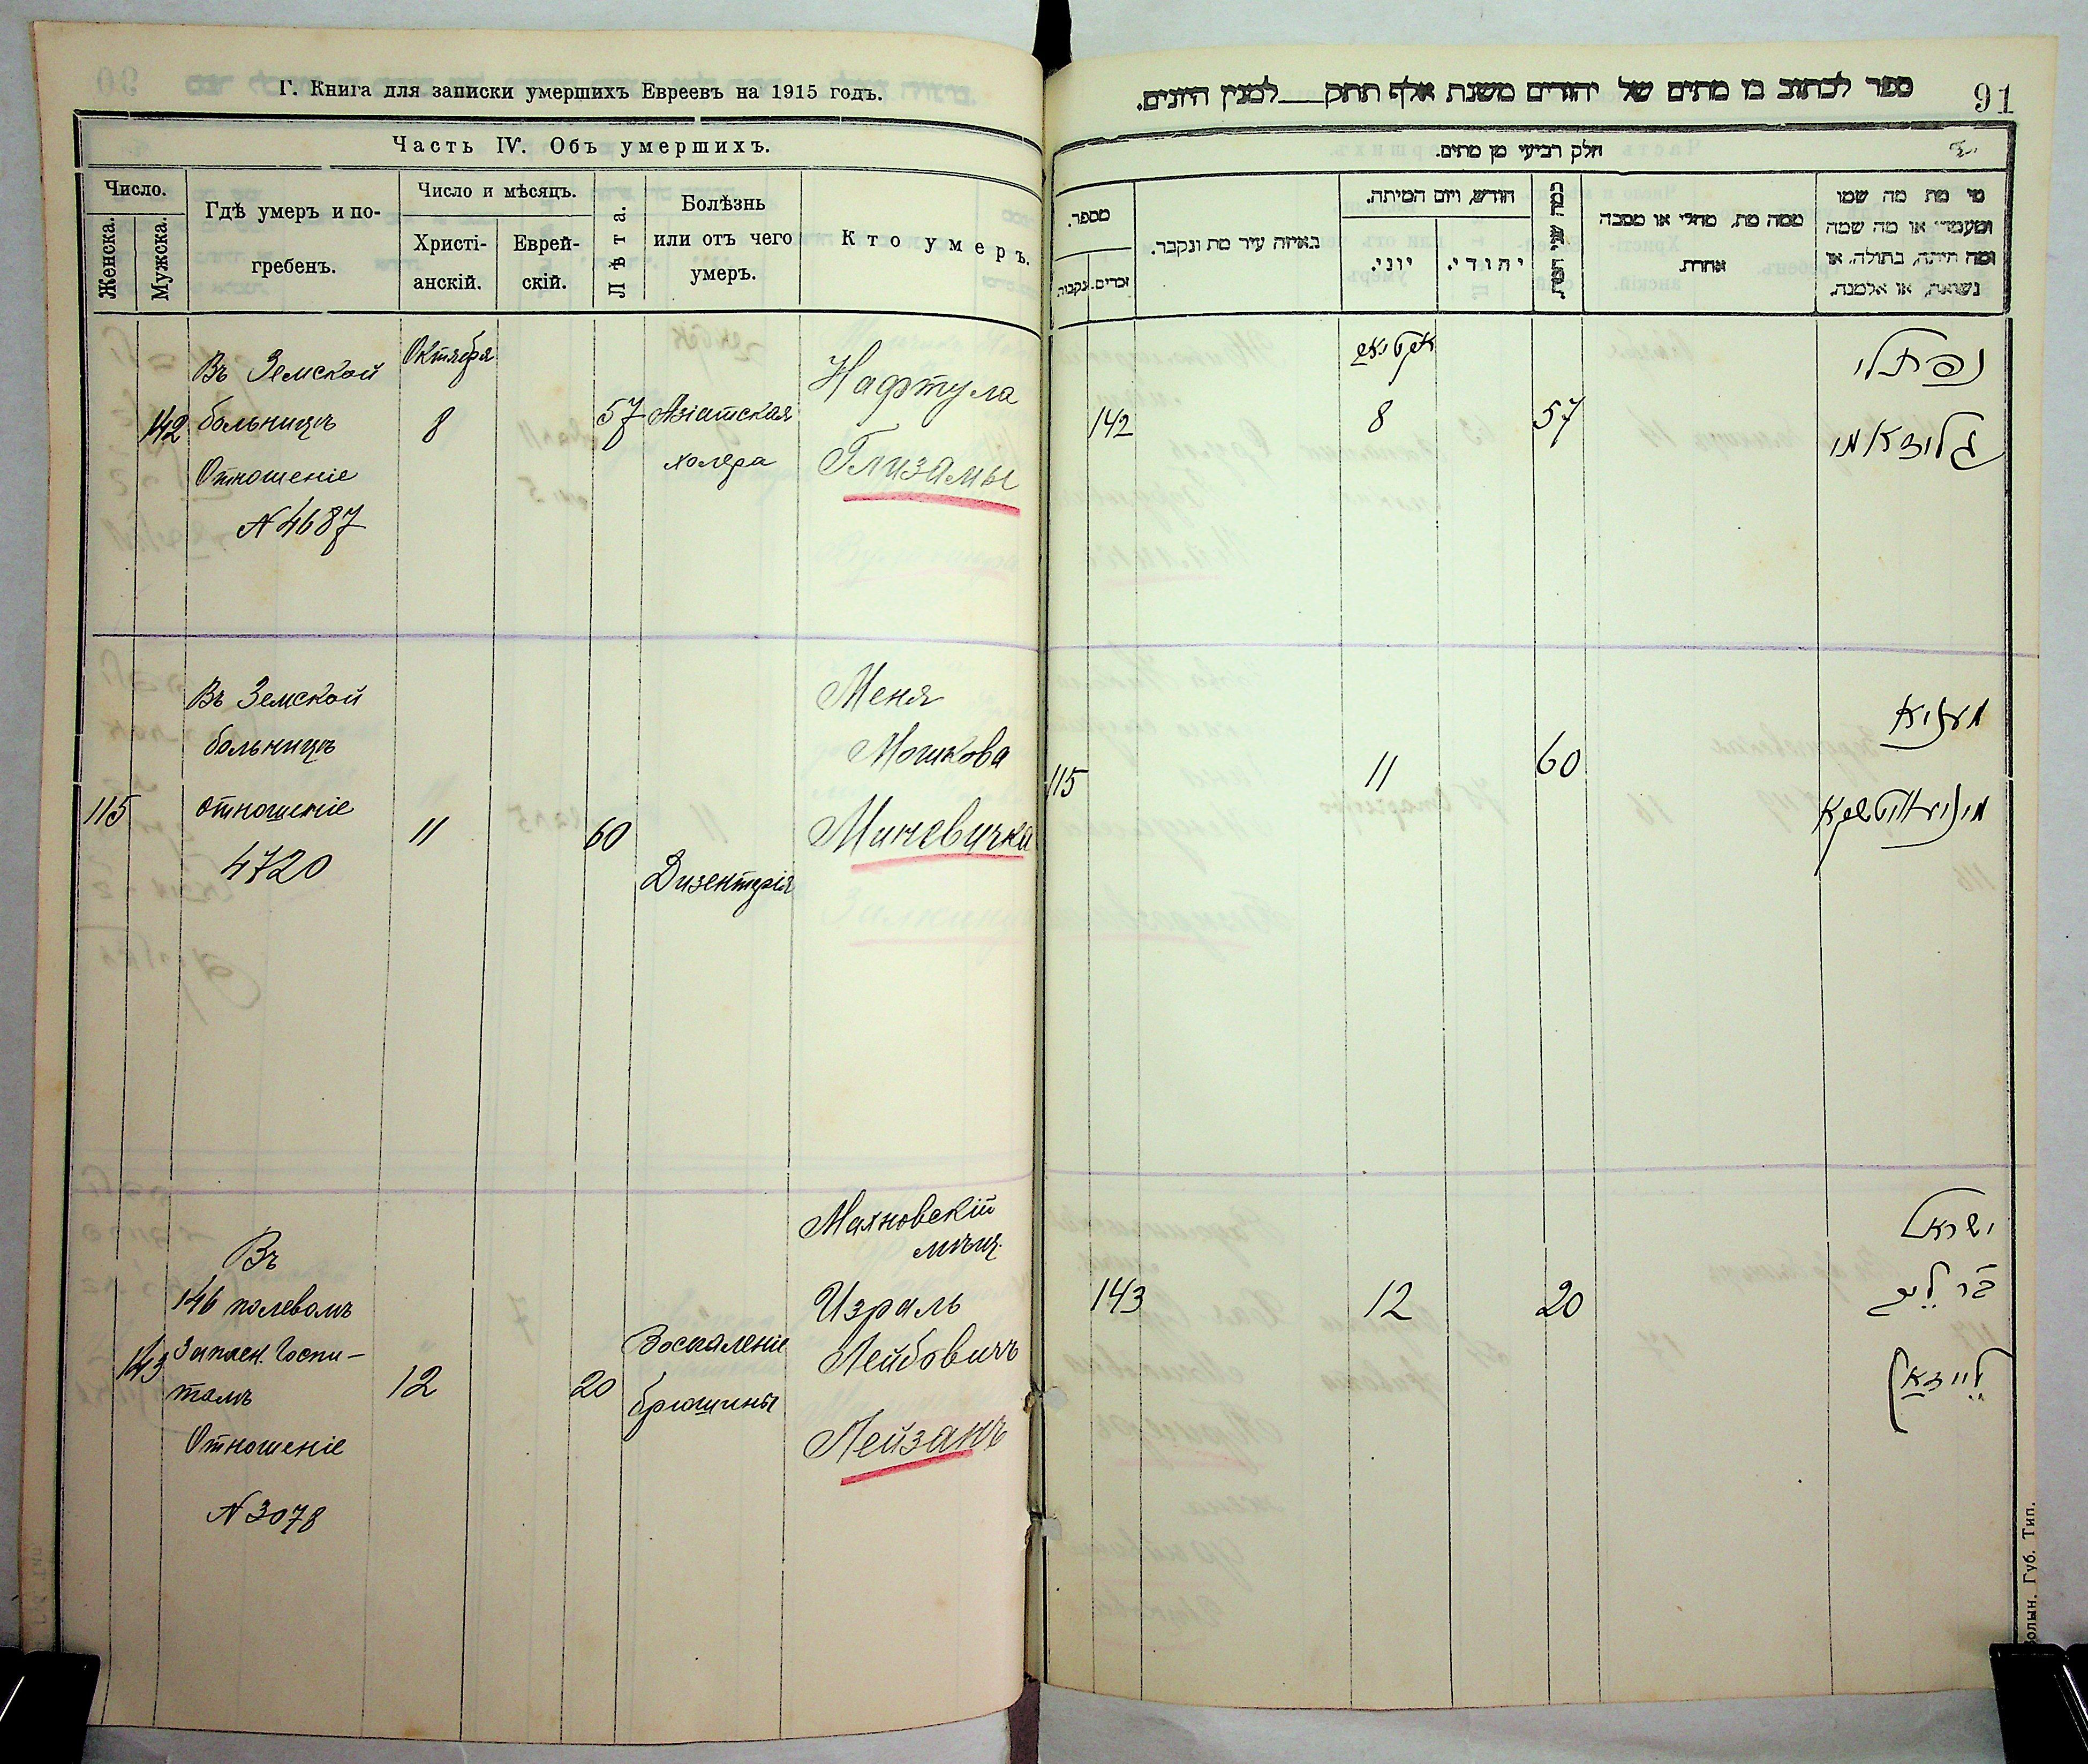 Г. Книга для записки умершихъ Евреевъ на 1915 годъ.
Часть IV. Объ умершихъ.
Число.
Женска.
Мужска.
Гдѣ умеръ и по-
гребенъ.
Число и мѣсяцъ.
Христі-
анскій.
Еврей-
скій.
Лѣта.
Болѣзнь
или отъ чего
умеръ.
Кто умеръ.
142
Въ Земской
больницѣ
Отношеніе
N 4687
Октября
8
57
Азіатская
холера
Нафтула
Глизамы
115
Въ Земской
больницѣ
отношеніе
4720
11
60
Дизентерія
Меня
Мошкова
Миневичка
143
Въ
146 полевомъ
Запасн. Госпи-
талѣ
Отношеніе
N 3078
12
20
Воспаленіе
брюшины
Махновскій
мѣщ.
Израль
Лейбовичъ
Лейзанъ
ספר לכתוב בו מתים של יהודים משנת אלף תתק___למנין היונים.
91
חלק רביעי מן מתים.
מספר.
נקבות
זכרים.
באיזה עיר מת ונקבר.
חודש, ויום המיתה.
יוני.
יהודי.
כמה שני חייו.
ממה מת, מחלי או מסבה
אחרת.
מי מת מה שמו
ומעמדו או מה שמה
ומה היתה, בתולה, או
נשואת, או אלמנה.
142
8
57
נפתלי
גליזאמי
115
11
60
מעניא
מינעוויטשקא
143
12
20
ישראל
בר ליב
לייזאן
Волын. Губ. Тип.